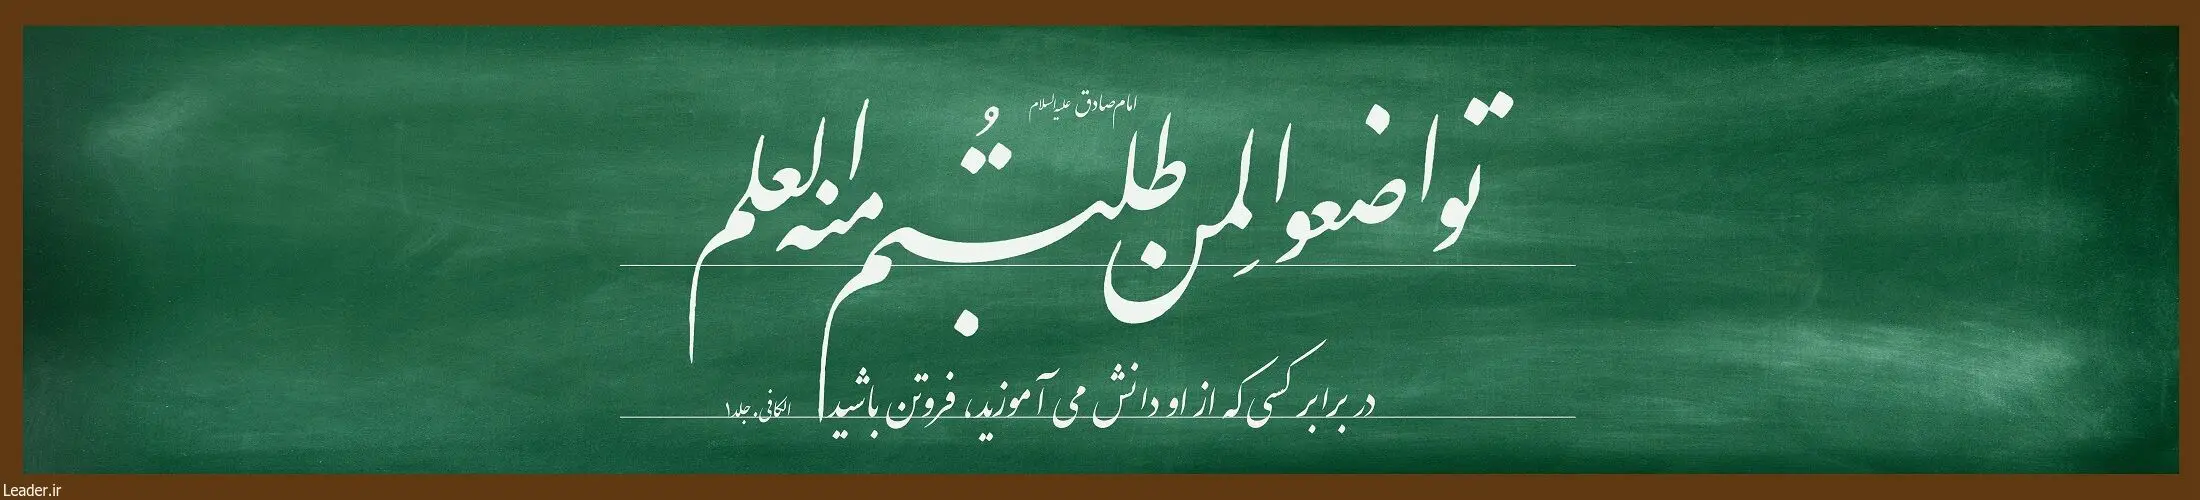 امام صادق علیه‌السلام
تواضعوا لِمن طلبتُم منه العلم
در برابر کسی که از او دانش می آموزید، فروتن باشید
الکافی. جلد ۱
Leader.ir